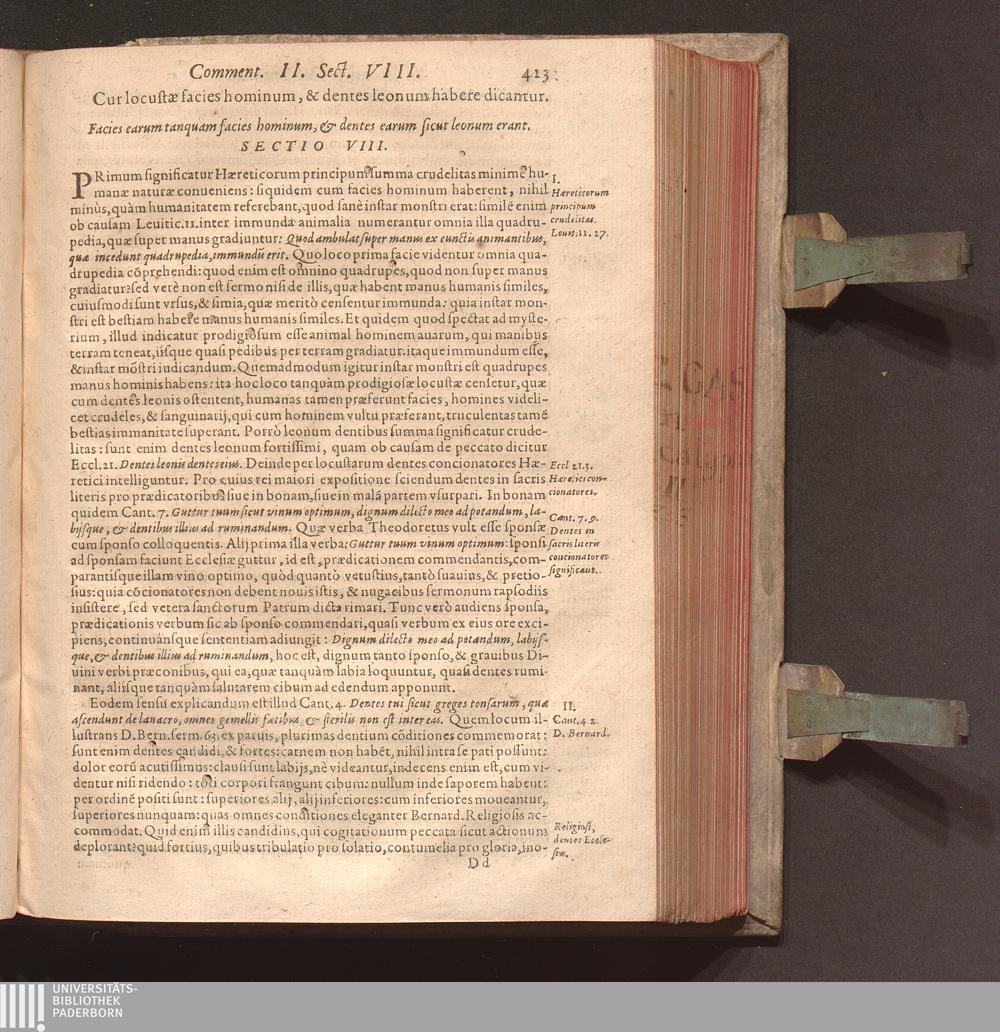 Comment. II. Sect. VIII. 423
Cur locustæ facies hominum, & dentes leonum habere dicantur.
Facies earum tanquam facies hominum, & dentes earum sicut leonum erant.
SECTIO VIII.
PRimum significatur Hæreticorum principum summa crudelitas minimè hu-
manæ naturæ conueniens: siquidem cum facies hominum haberent, nihil
minùs, quàm humanitatem referebant, quod sanè instar monstri erat: simile enim
ob causam Leuitic. 11. inter immunda animalia numerantur omnia illa quadru-
pedia, quæ super manus gradiuntur: Quod ambulat super manus ex cunctis animantibus,
quæ incedunt quadrupedia, immundũ erit. Quo loco prima facie videntur omnia qua-
drupedia cõprehendi: quod enim est omnino quadrupes, quod non super manus
gradiatur? sed verè non est sermo nisi de illis, quæ habent manus humanis similes,
cuiusmodi sunt vrsus, & simia, quæ meritò censentur immunda: quia instar mon-
stri est bestiam habere manus humanis similes. Et quidem quod spectat ad myste-
rium, illud indicatur prodigiosum esse animal hominem auarum, qui manibus
terram teneat, iisque quasi pedibus per terram gradiatur: itaque immundum esse,
& instar mõstri iudicandum. Quemadmodum igitur instar monstri est quadrupes
manus hominis habens: ita hoc loco tanquàm prodigiosæ locustæ censetur, quæ
cum dentes leonis ostentent, humanas tamen præferunt facies, homines videli-
cet crudeles, & sanguinarij, qui cum hominem vultu præferant, truculentas tamẽ
bestias immanitate superant. Porrò leonum dentibus summa significatur crude-
litas: sunt enim dentes leonum fortissimi, quam ob causam de peccato dicitur
Eccl. 21. Dentes leonis dentes eius. Deinde per locustarum dentes concionatores Hæ-
retici intelliguntur. Pro cuius rei maiori expositione sciendum dentes in sacris
literis pro prædicatoribus siue in bonam, siue in malã partem vsurpari. In bonam
quidem Cant. 7. Guttur tuum sicut vinum optimum, dignum dilecto meo ad potandum, la-
bijsque, & dentibus illius ad ruminandum. Quæ verba Theodoretus vult esse sponsæ
cum sponso colloquentis. Alij prima illa verba: Guttur tuum vinum optimum: sponsi
ad sponsam faciunt Ecclesiæ guttur, id est, prædicationem commendantis, com-
parantisque illam vino optimo, quòd quantò vetustius, tantò suauius, & pretio-
sius: quia cõcionatores non debent nouis istis, & nugacibus sermonum rapsodiis
insistere, sed vetera sanctorum Patrum dicta rimari. Tunc verò audiens sponsa,
prædicationis verbum sic ab sponso commendari, quasi verbum ex eius ore exci-
piens, continuánsque sententiam adiungit: Dignum dilecto meo ad potandum, labijs-
que, & dentibus illius ad ruminandum, hoc est, dignum tanto sponso, & grauibus Di-
uini verbi præconibus, qui ea, quæ tanquàm labia loquuntur, quasi dentes rumi-
nant, aliisque tanquàm salutarem cibum ad edendum apponunt.
Eodem sensu explicandum est illud Cant. 4. Dentes tui sicut greges tonsarum, quæ
ascendunt de lauacro, omnes gemellis fœtibus, & sterilis non est inter eas. Quem locum il-
lustrans D. Bern. serm. 63. ex paruis, plurimas dentium cõditiones commemorat:
sunt enim dentes candidi, & fortes: carnem non habẽt, nihil intra se pati possunt:
dolor eorũ acutissimus: clausi sunt labijs, nè videantur, indecens enim est, cum vi-
dentur nisi ridendo: toti corpori frangunt cibum: nullum inde saporem habent:
per ordinẽ positi sunt: superiores alij, alij inferiores: cum inferiores moueantur,
superiores nunquam: quas omnes conditiones eleganter Bernard. Religiosis ac-
commodat. Quid enim illis candidius, qui cogitationum peccata sicut actionum
deplorant? quid fortius, quibus tribulatio pro solatio, contumelia pro gloria, ino-
Dd
I.
Hæreticorum
principum
crudelitas.
Leuit. 11. 27.
Eccl 21. 3.
Hæretici con-
cionatores.
Cant. 7. 9.
Dentes in
sacris literis
concionatores
significant.
II.
Cant. 4. 2.
D. Bernard.
Religiosi,
dentes Eccle-
siæ.
UNIVERSITÄTS-
BIBLIOTHEK
PADERBORN